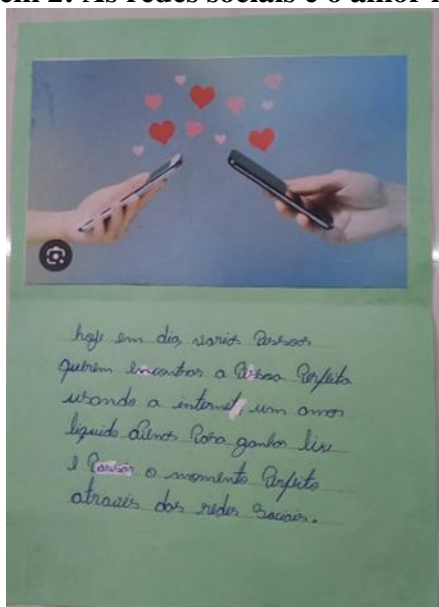 em 2: As redes sociais e o amor
hoje em dia, varias Pessoas
querem encontrar a Pessoa Perfeita
usando a internet, um amor
liquido Apenas Para ganhar like
e Passar o momento Perfeito
através das redes Sociais.